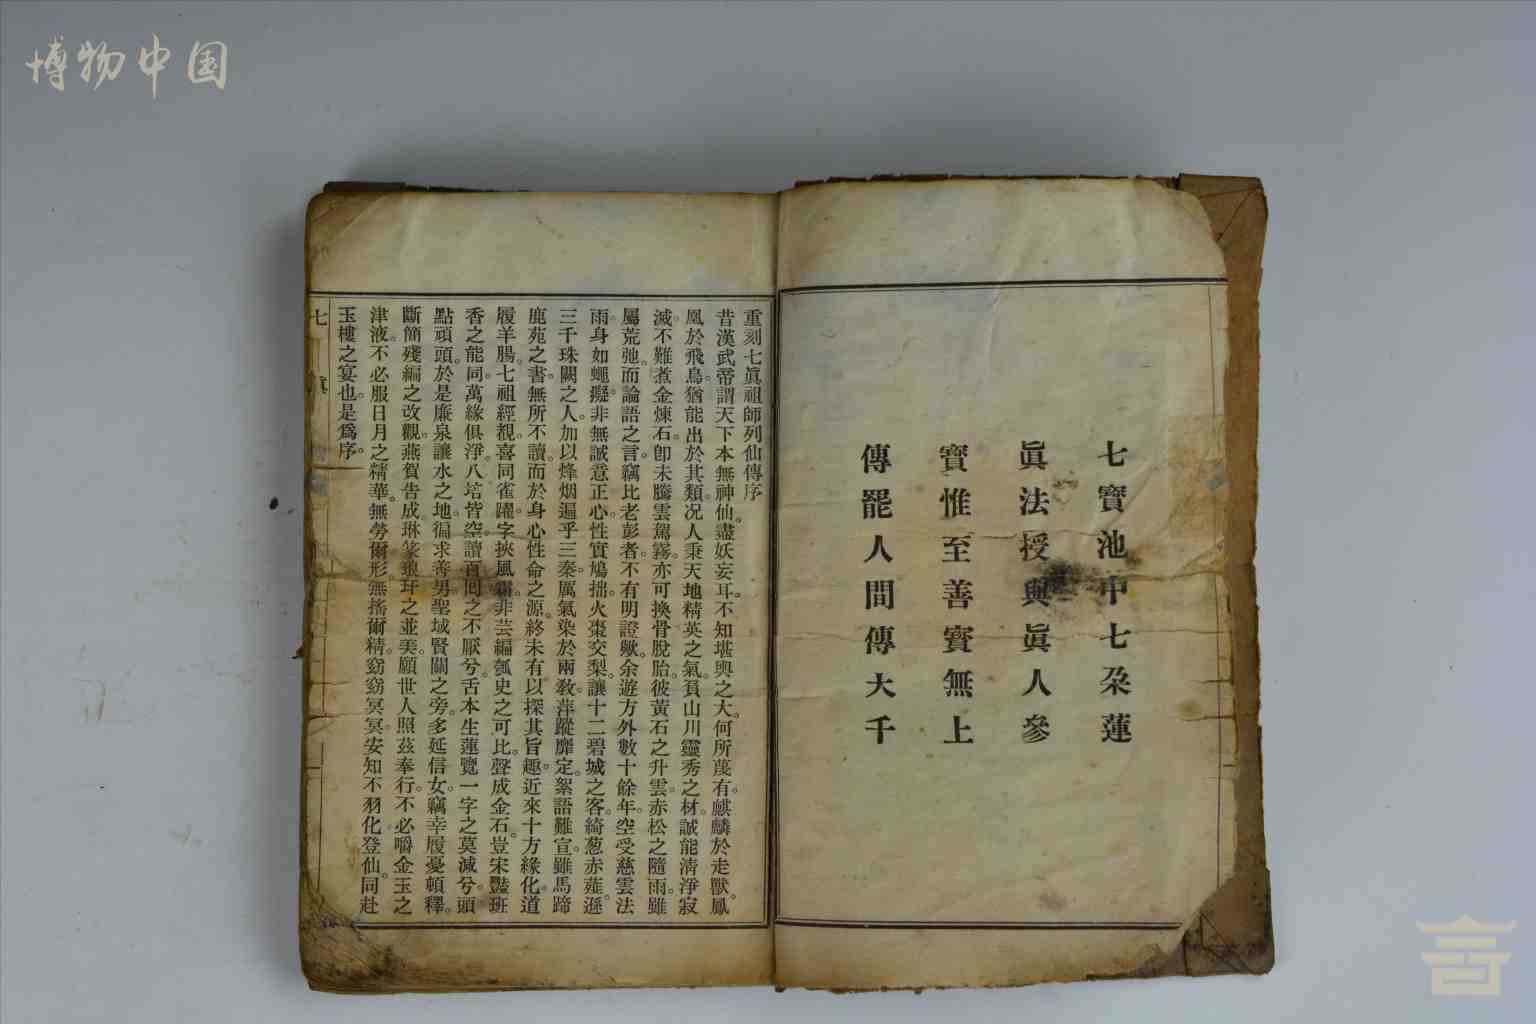 博物中国
七寶池中七朶蓮
眞法授與眞人參
寶惟至善寶無上
傳罷人間傳大千
重刻七眞祖師列仙傳序
昔漢武帝謂天下本無神仙。盡妖妄耳。不知堪輿之大。何所蔑有。麒麟於走獸。鳳
凰於飛鳥。猶能出於其類。况人秉天地精英之氣。負山川靈秀之材。誠能清淨寂
滅。不難煮金煉石。卽未騰雲駕霧。亦可換骨脫胎。彼黃石之升雲。赤松之隨雨。雖
屬荒弛。而論語之言。竊比老彭者。不有明證歟。余遊方外數十餘年。空受慈雲法
雨。身如蠅擬。非無誠意正心。性實鳩拙。火棗交梨。讓十二碧城之客。綺葱赤薤。遜
三千珠闕之人。加以烽烟遍乎三秦。厲氣染於兩敎。萍蹤靡定。絮語難宣。雖馬蹄
鹿苑之書。無所不讀。而於身心性命之源。終未有以探其旨趣。近來十方緣化。道
履羊腸。七祖經覩。喜同雀躍。字挾風霜。非芸編瓠史之可比。聲成金石。豈宋豔班
香之能同。萬緣俱淨。八培皆空。讀百囘之不厭兮。舌本生蓮。覽一字之莫減兮。頭
點頑頭。於是廉泉讓水之地。徧求善男。聖域賢關之旁。多延信女。竊幸履憂頓釋。
斷簡殘編之改觀。燕賀告成。琳篆琅玕之並美。願世人照茲奉行。不必嚼金玉之
津液。不必服日月之精華。無勞爾形。無搖爾精。窈窈冥冥。安知不羽化登仙。同赴
玉樓之宴也。是爲序。
七眞